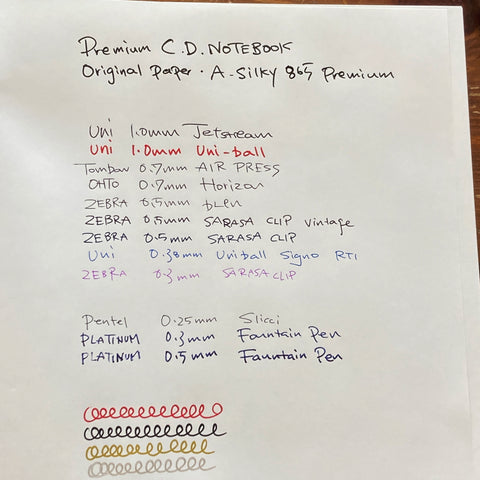 Premium C.D. NOTEBOOK
Original Paper · A-Silky 865 Premium
Uni 1.0mm Jetstream
Uni 1.0mm Uni-ball
Tombow 0.7mm AIR PRESS
OHTO 0.7mm Horizon
ZEBRA 0.5mm bLen
ZEBRA 0.5mm SARASA CLIP Vintage
ZEBRA 0.5mm SARASA CLIP
Uni 0.38mm Uniball Signo RT1
ZEBRA 0.3mm SARASA CLIP
Pentel 0.25mm Slicci
PLATINUM 0.3mm Fauntain Pen
PLATINUM 0.5mm Fauntain Pen